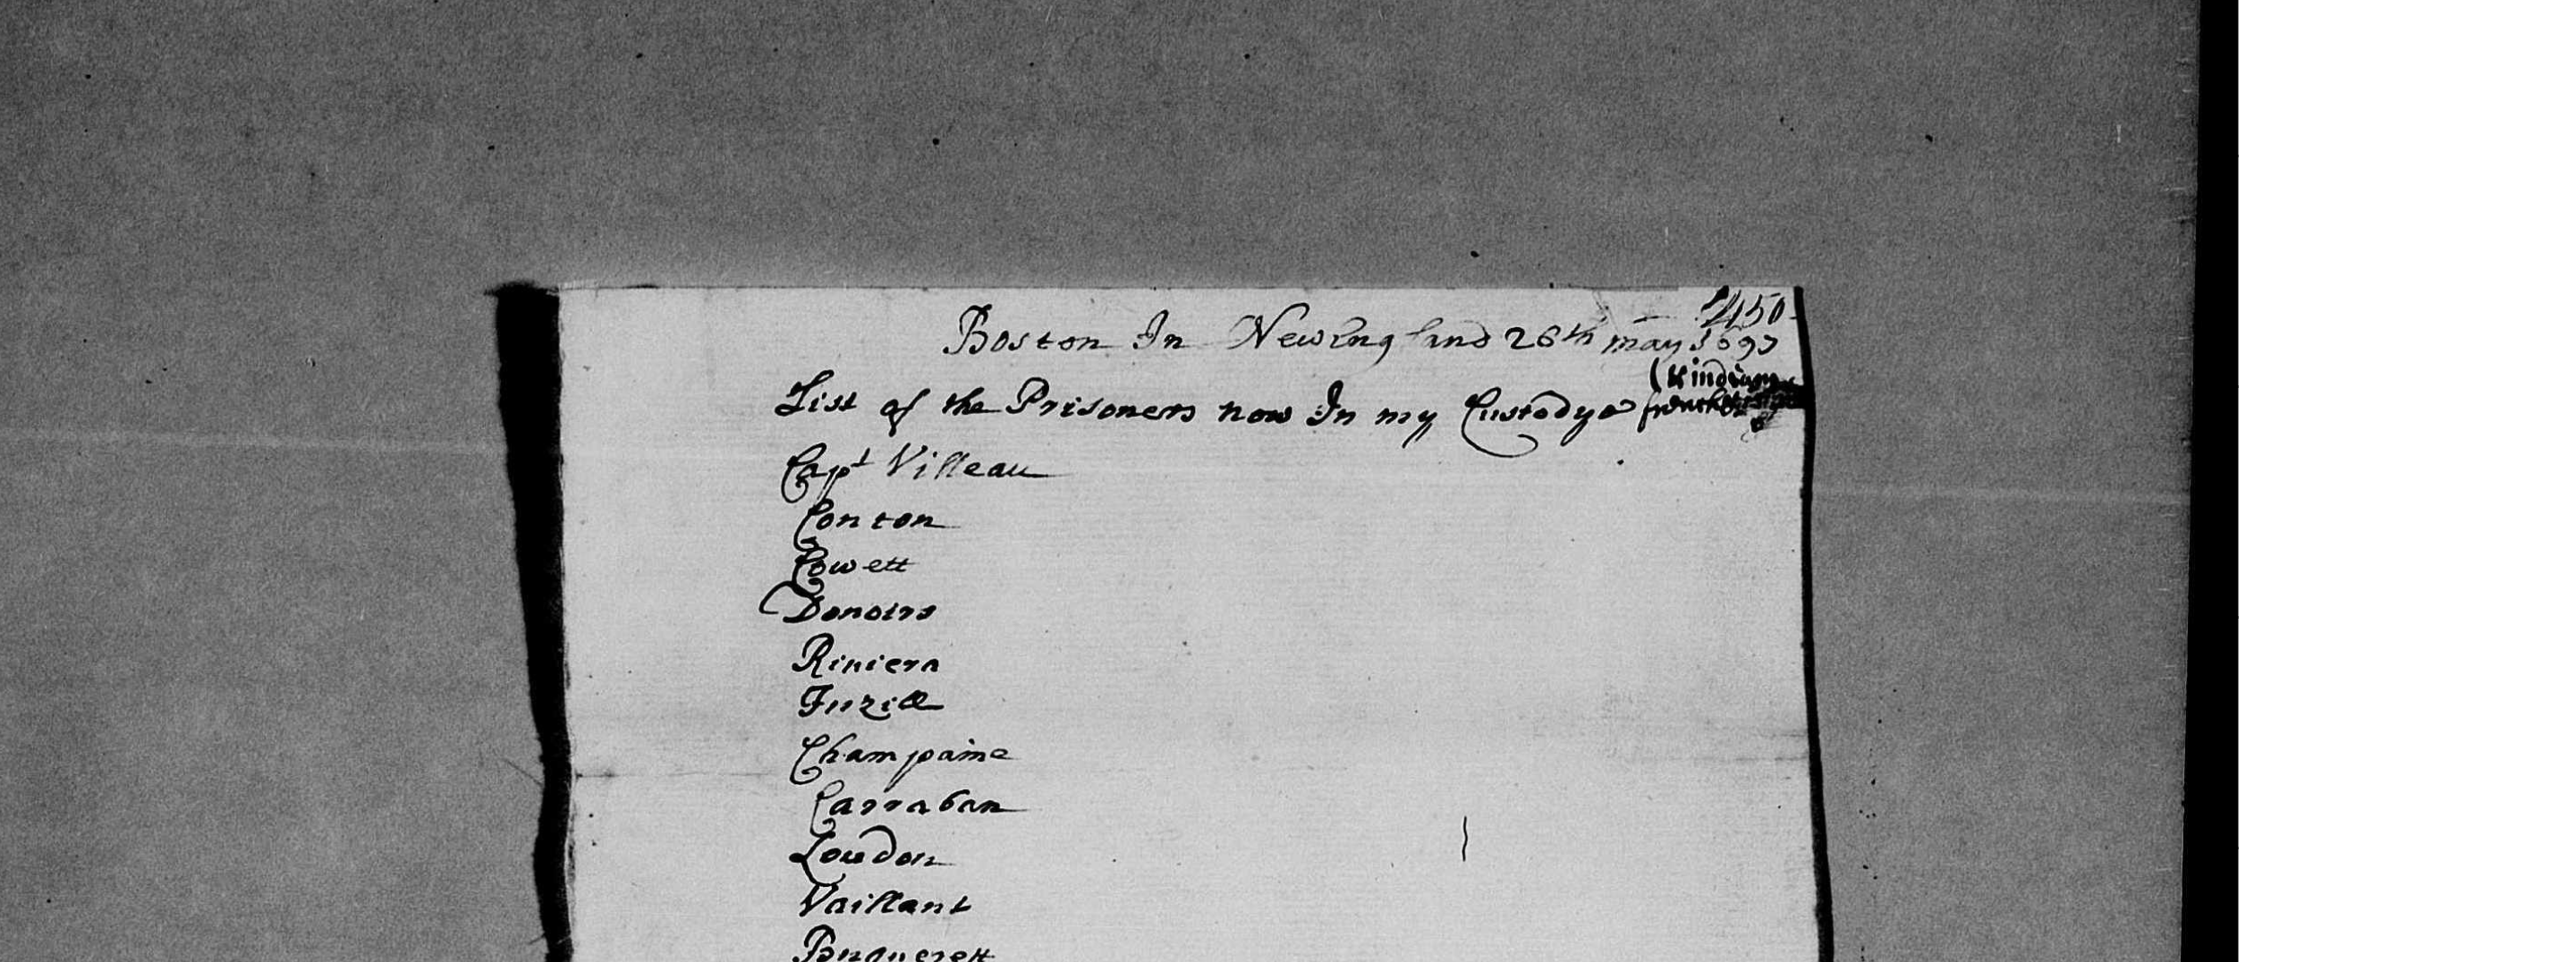 450
Boston In New England 26th may 1697
List of the Prisoners now In my Custodye
Capt Villeau
Conton
Cowett
Denoirs
Riviera
Champaine
Carraban
Loudon
Vaillant